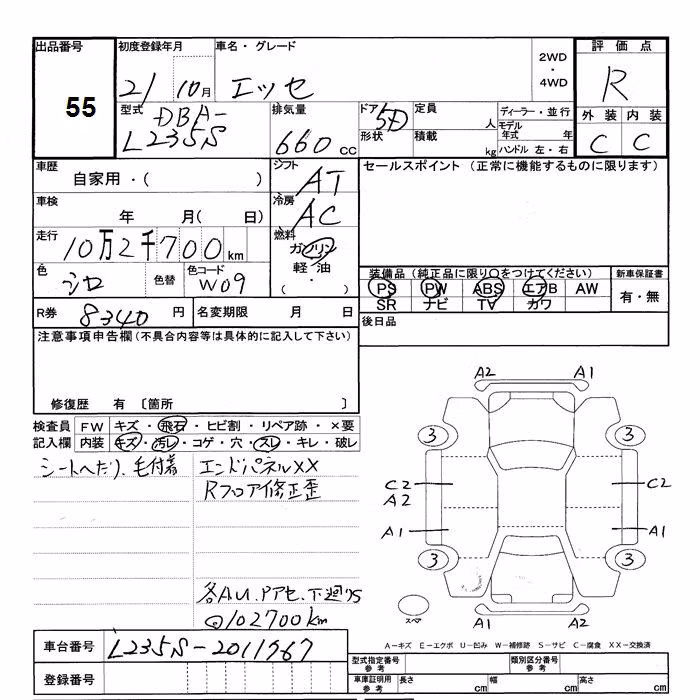 出品番号 初度登録年月 車名・グレード 評価点
55
21 10月 エッセ
2WD
・
4WD
R
型式 DBA-
L235S
排気量 660 cc
ドア 5D
形状
定員 人
積載 kg
ディーラー・並行
モデル年式 年
ハンドル 左・右
外装 内装
C C
車歴 自家用・( )
シフト AT
セールスポイント (正常に機能するものに限ります)
車検 年 月( 日)
冷房 AC
走行 10万2千700km
燃料 ガソリン
軽油
( ・ )
色 シロ 色替 色コード W09
装備品 (純正品に限り○をつけてください) 新車保証書
PS PW ABS エアB AW
SR ナビ TV カワ
有・無
R券 8340 円 名変期限 月 日
後日品
注意事項申告欄 (不具合内容等は具体的に記入して下さい)
修復歴 有 〔箇所 〕
検査員 FW キズ・飛石・ヒビ割・リペア跡・×要
記入欄 内装 キズ・汚レ・コゲ・穴・スレ・キレ・破レ
シートへたり、毛付着 エンドパネルXX
Rフロア修正歪
A2 A1
3 3
C2 C2
A2
A1 A1
3 3
スペア A1 A2
@102700km
A-キズ E-エクボ U-凹み W-補修跡 S-サビ C-腐食 XX-交換済
車台番号 L235S-2011967
登録番号
型式指定番号 参考 類別区分番号 参考
車庫証明用 参考 長さ cm 幅 cm 高さ cm